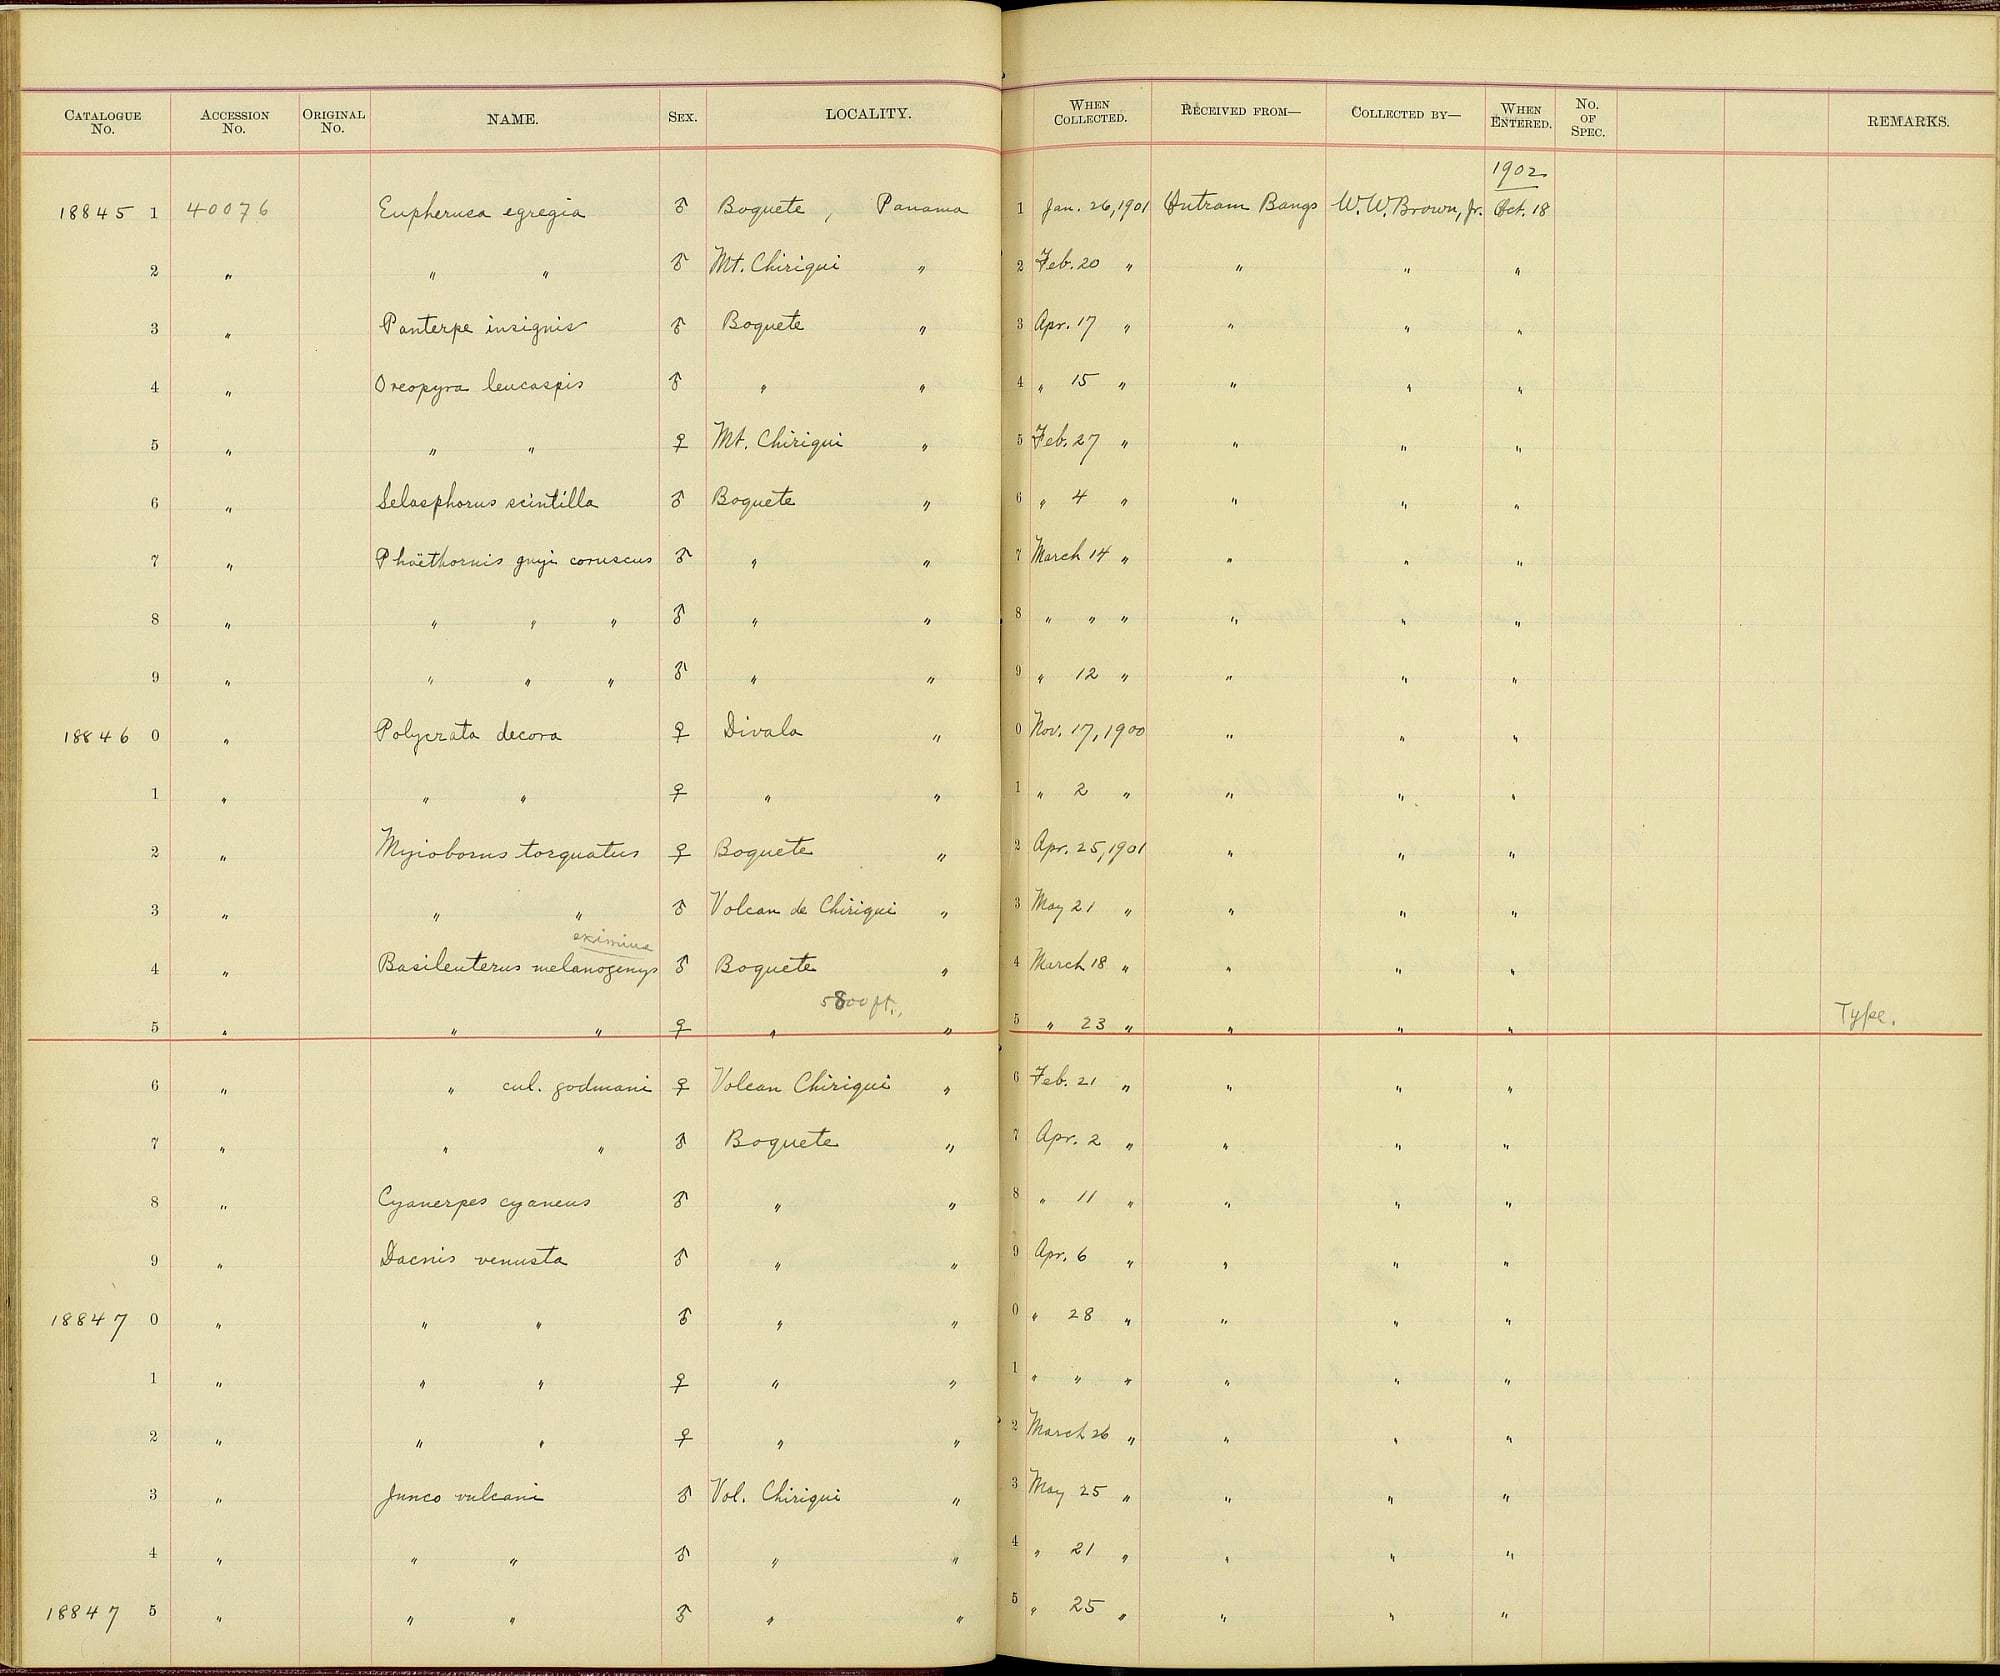 CATALOGUE No. ACCESSION No. ORIGINAL No. NAME. SEX. LOCALITY. WHEN COLLECTED. RECEIVED FROM— COLLECTED BY— WHEN ENTERED. No. OF SPEC. REMARKS.
1902
18845 1 40076 Eupherusa egregia ♂ Boquete, Panama 1 Jan. 26, 1901 Outram Bangs W. W. Brown, Jr. Oct. 18
2 " " " ♂ Mt. Chiriqui " 2 Feb. 20 " " " "
3 " Panterpe insignis ♂ Boquete " 3 Apr. 17 " " " "
4 " Oreopyra leucaspis ♂ " " 4 " 15 " " " "
5 " " " ♀ Mt. Chiriqui " 5 Feb. 27 " " " "
6 " Selasphorus scintilla ♂ Boquete " 6 " 4 " " " "
7 " Phaëthornis guyi coruscus ♂ " " 7 March 14 " " " "
8 " " " " ♂ " " 8 " " " " " "
9 " " " " ♂ " " 9 " 12 " " " "
18846 0 " Polyerata decora ♀ Divala " 0 Nov. 17, 1900 " " "
1 " " " ♀ " " 1 " 2 " " " "
2 " Myioborus torquatus ♀ Boquete " 2 Apr. 25, 1901 " " "
3 " " " ♂ Volcan de Chiriqui " 3 May 21 " " " "
eximius
4 " Basileuterus melanogenys ♂ Boquete " 4 March 18 " " " "
5800 ft.,
5 " " " ♀ " " 5 " 23 " " " " Type.
6 " " cul. godmani ♀ Volcan Chiriqui " 6 Feb. 21 " " " "
7 " " " ♂ Boquete " 7 Apr. 2 " " " "
8 " Cyanerpes cyaneus ♂ " " 8 " 11 " " " "
9 " Dacnis venusta ♂ " " 9 Apr. 6 " " " "
18847 0 " " " ♂ " " 0 " 28 " " " "
1 " " " ♀ " " 1 " " " " " "
2 " " " ♀ " " 2 March 26 " " " "
3 " Junco vulcani ♂ Vol. Chiriqui " 3 May 25 " " " "
4 " " " ♂ " " 4 " 21 " " " "
18847 5 " " " ♂ " " 5 " 25 " " " "